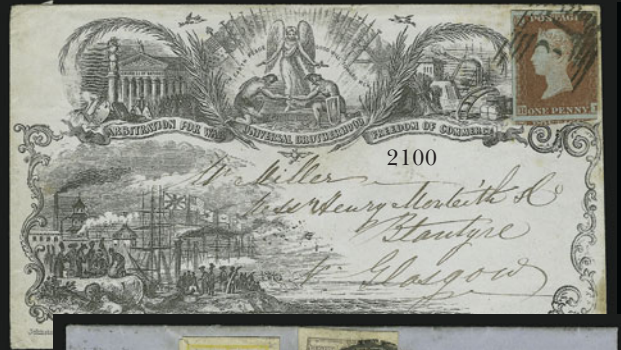 POSTAGE
ONE PENNY
ARBITRATION FOR WAR
UNIVERSAL BROTHERHOOD
FREEDOM OF COMMERCE
2100
Mr Miller
Messrs Henry Monteith & Co
Blantyre
Glasgow